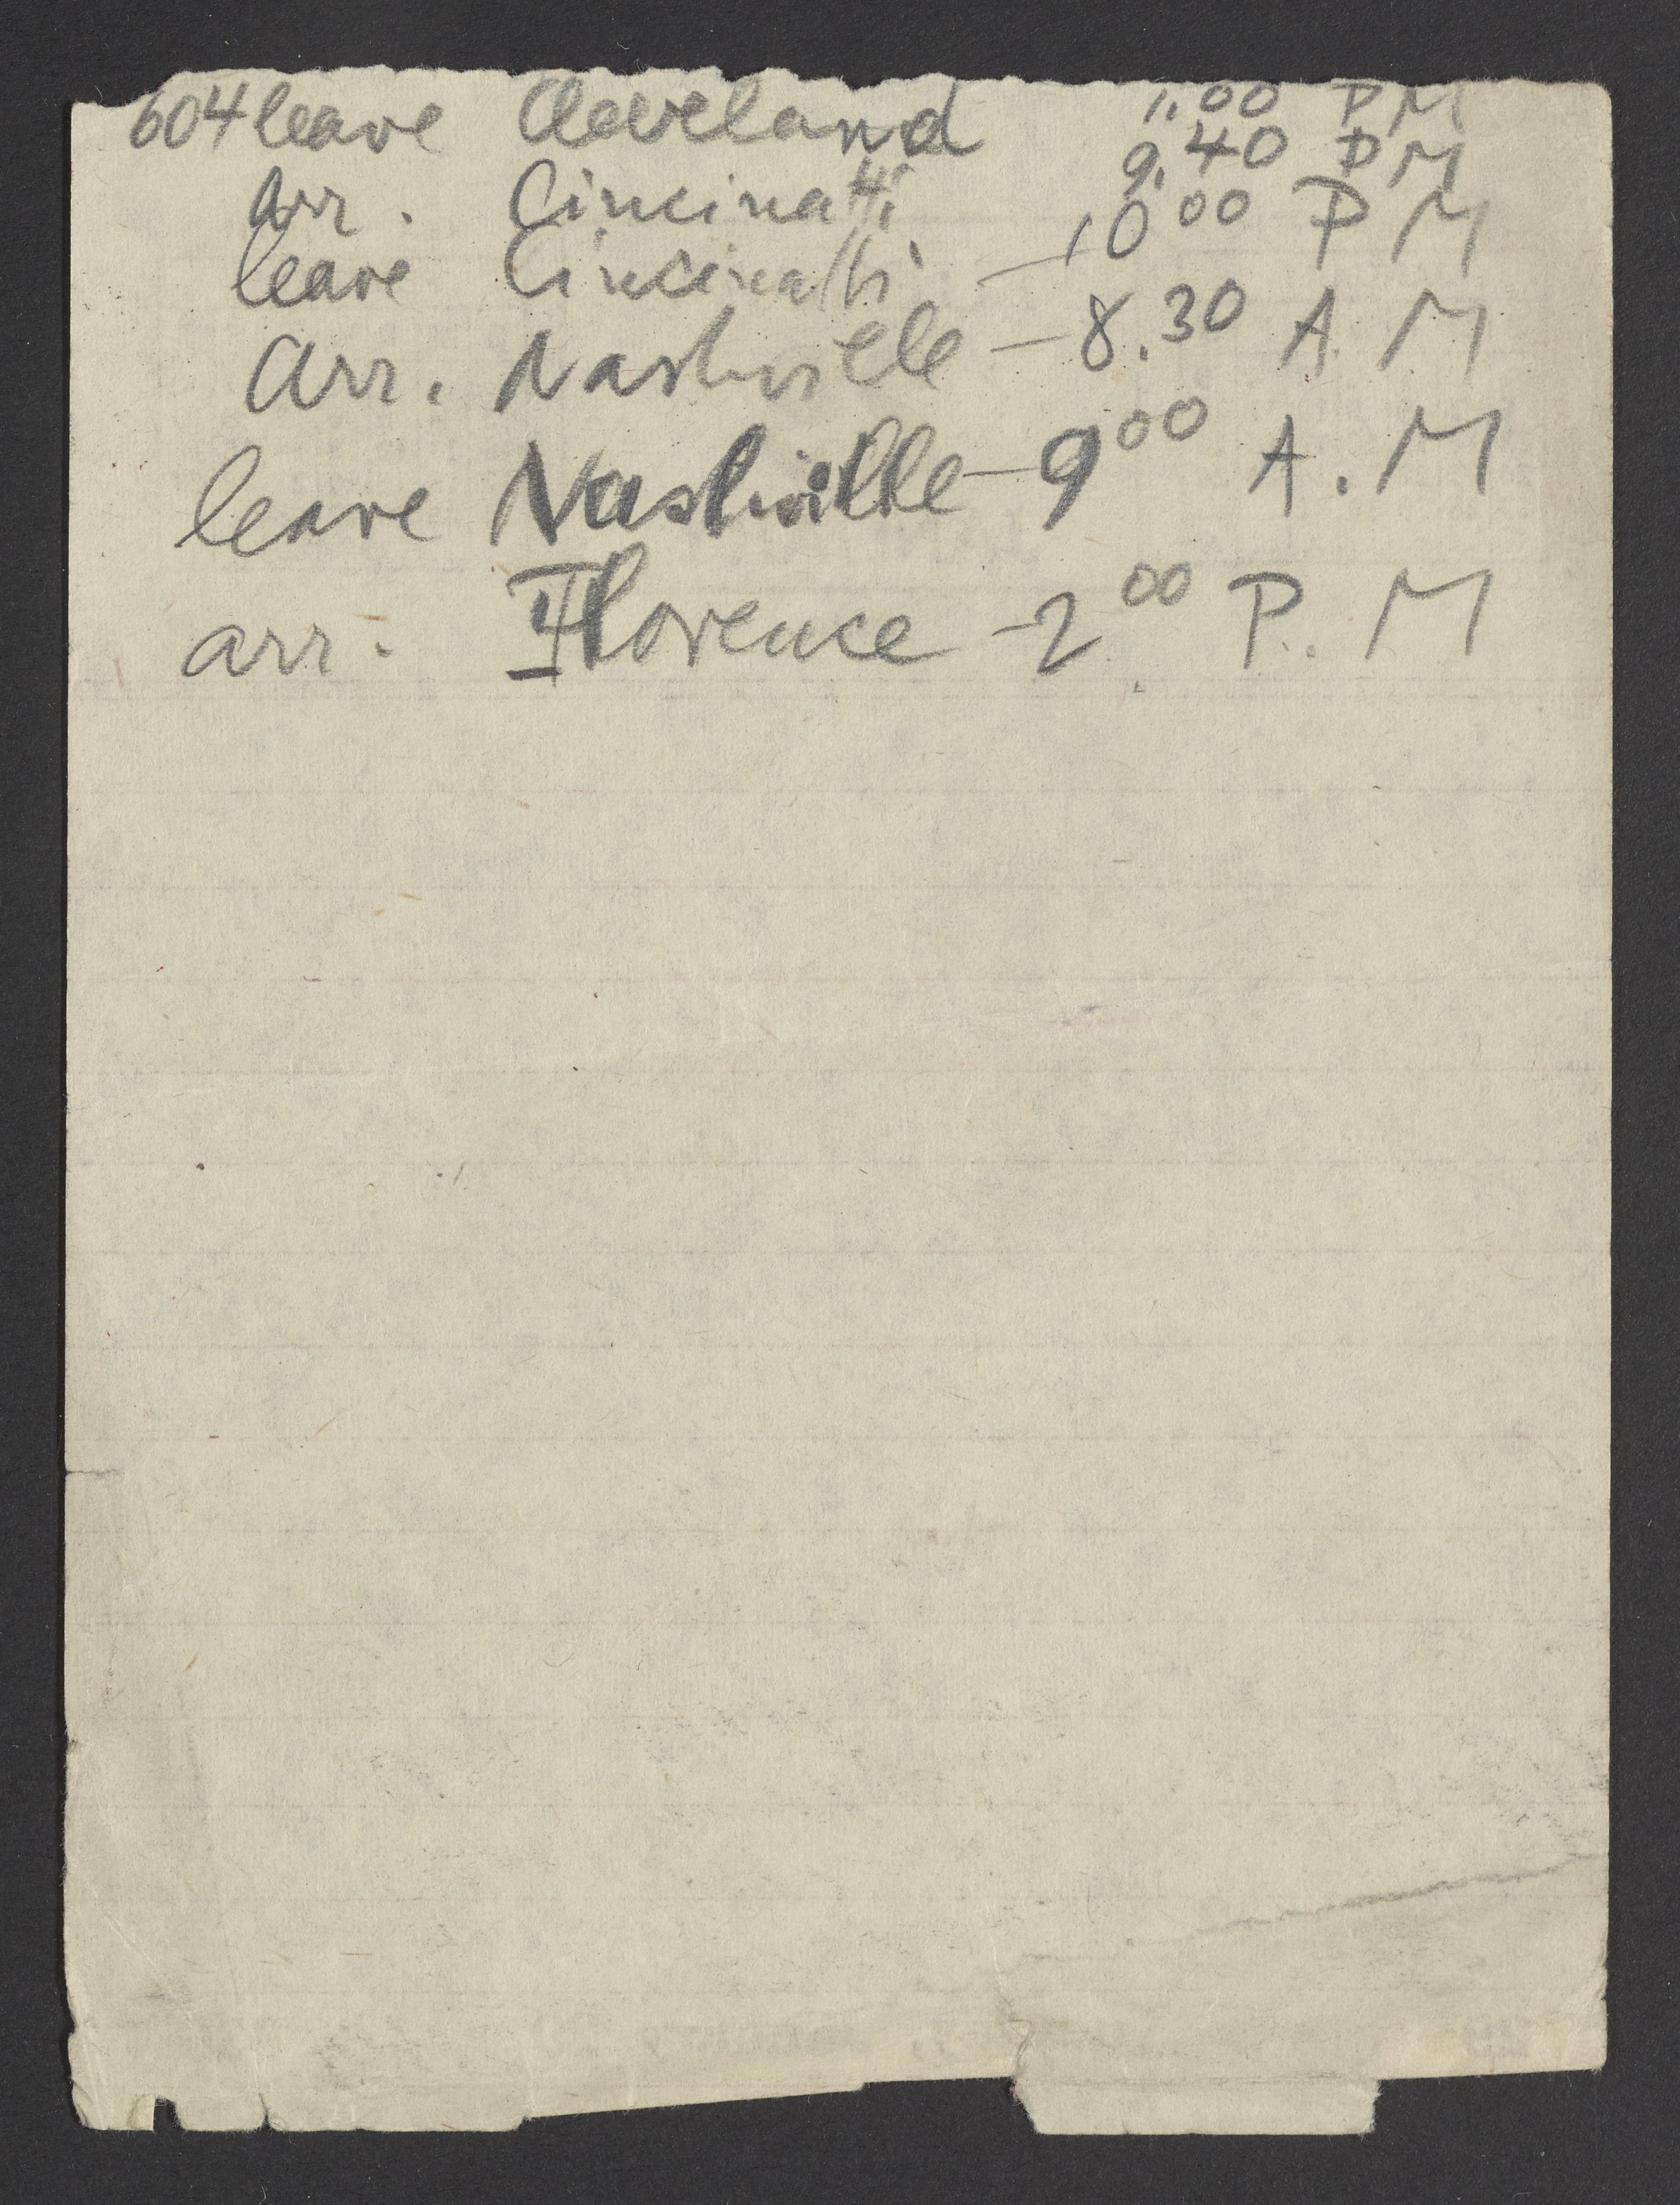 604 leave Cleveland 1.00 PM
arr. Cincinatti 9.40 PM
leave Cincinatti — 10 00 P M
arr. Nashville — 8.30 A. M
leave Nashville — 9 00 A. M
arr. Florence - 2 00 P. M